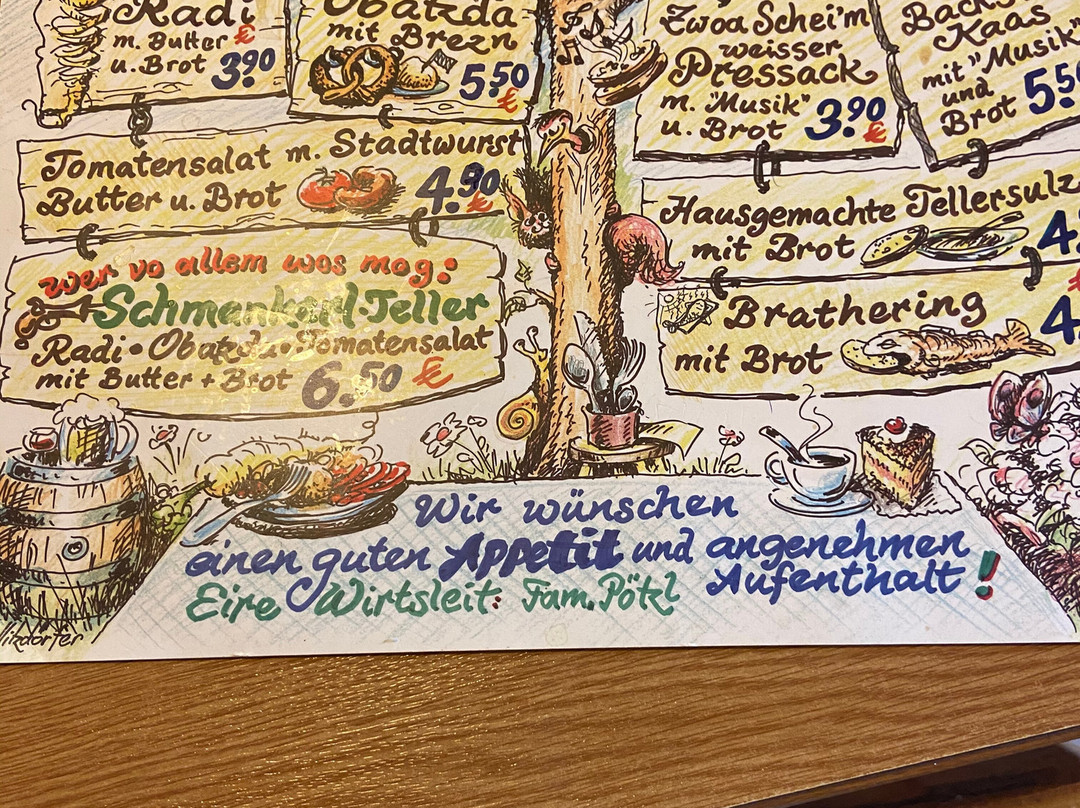 Radi
m. Butter €
u. Brot 3.90
Obatzda
mit Brezn
5.50
€
Tomatensalat m. Stadtwurst
Butter u. Brot 4.90
€
wer vo allem wos mog:
Schmankerl-Teller
Radi • Obatzda • Tomatensalat
mit Butter + Brot 6.50 €
Zwoa Scheim
weisser
Pressack
m. "Musik"
u. Brot 3.90
€
Kaas
mit "Musik"
und
Brot
Hausgemachte Tellersulz
mit Brot
Brathering
mit Brot
Wir wünschen
einen guten Appetit und angenehmen
Aufenthalt!
Eire Wirtsleit: Fam. Pötzl